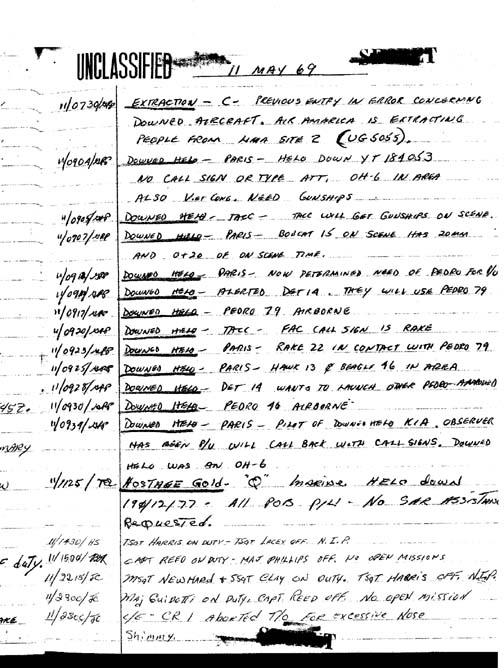 UNCLASSIFIED
11 MAY 69
11/0730/
EXTRACTION - C - PREVIOUS ENTRY IN ERROR CONCERNING
DOWNED AIRCRAFT. AIR AMARICA IS EXTRACTING
PEOPLE FROM LIMA SITE 2 (UG5055).
11/0904/
DOWNED HELO - PARIS - HELO DOWN YT 184053
NO CALL SIGN OR TYPE ATT, OH-6 IN AREA
ALSO VIET CONG. NEED GUNSHIPS
11/0905/
DOWNED HELO - TACC - TACC WILL GET GUNSHIPS ON SCENE.
11/0907/
DOWNED HELO - PARIS - BOBCAT 15 ON SCENE HAS 20MM
AND 0+20 OF ON SCENE TIME.
DOWNED HELO - PARIS - NOW DETERMINED NEED OF PEDRO FOR P/U
DOWNED HELO - ALERTED DET 14. THEY WILL USE PEDRO 79
11/0917/
DOWNED HELO - PEDRO 79 AIRBORNE
11/0920/
DOWNED HELO - TACC - FAC CALL SIGN IS RAKE
11/0923/
DOWNED HELO - PARIS - RAKE 22 IN CONTACT WITH PEDRO 79
11/0925/
DOWNED HELO - PARIS - HAWK 13 & BEAGLE 46 IN AREA
11/0928/
DOWNED HELO - DET 14 WANTS TO LAUNCH OTHER PEDRO
457.
11/0930/
DOWNED HELO - PEDRO 46 AIRBORNE
11/0934/
DOWNED HELO - PARIS - PILOT OF DOWNED HELO KIA. OBSERVER
HAS BEEN P/U WILL CALL BACK WITH CALL SIGNS. DOWNED
MARY
HELO WAS AN OH-6
11/1125/
HOSTAGE GOLD - "Q" MARINE HELO down
198/12/77 - All POB P/U - No SAR Assistance
Requested.
11/1430/HS
TSGT HARRIS ON DUTY - TSGT LACEY OFF. N.I.P.
duty.
11/1500/
CAPT REED ON DUTY - MAJ PHILLIPS OFF. NO OPEN MISSIONS
11/2215/JC
MSGT NEWHARD & SSGT CLAY ON DUTY. TSGT HARRIS OFF. N.I.P.
11/2300/JC
MAJ GUIDOTTI ON DUTY. CAPT REED OFF. NO OPEN MISSION
11/2300/JC
C/E - CR 1 Aborted T/O FOR Excessive Nose
Shimmy.